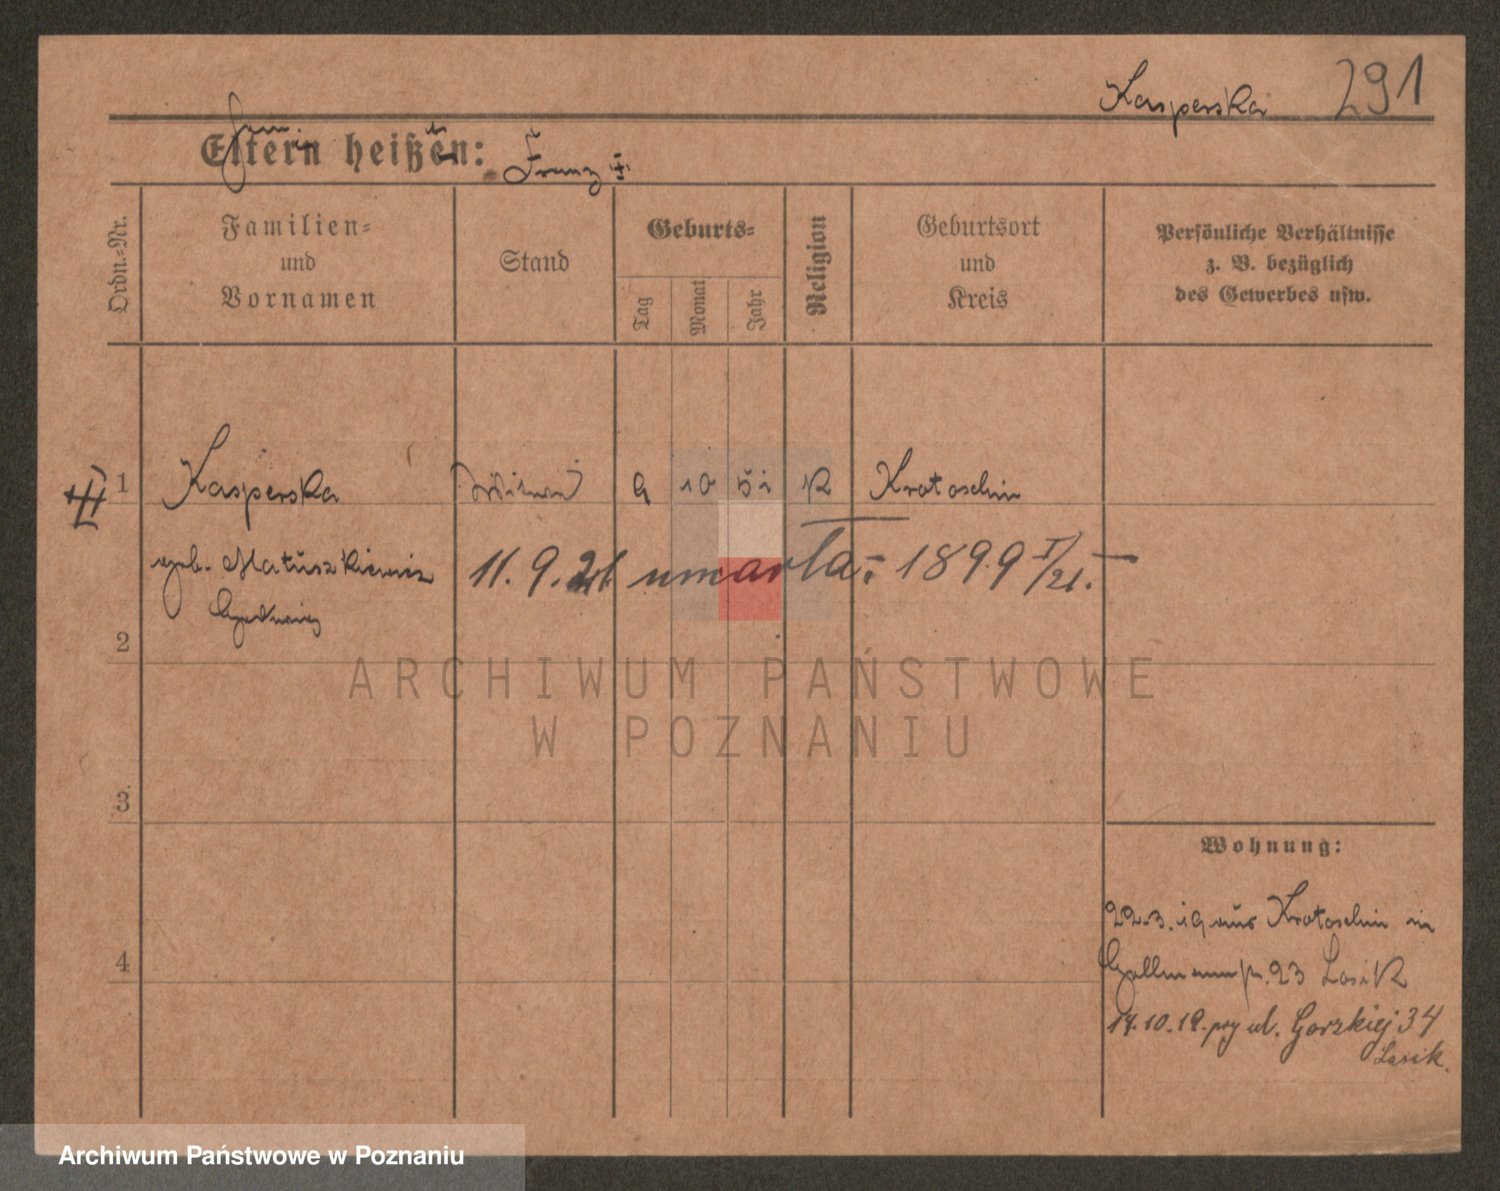 Kasperska 291
Eltern heißen: Franz ‡
Ordn.-Nr.
Familien- und Vornamen
Stand
Geburts-
Tag
Monat
Jahr
Religion
Geburtsort und Kreis
Persönliche Verhältnisse z. B. bezüglich des Gewerbes usw.
1 Kasperska 9 10 51 K Krotoschin
geb. Matuszkiewicz 11. 9. 21 umarła: 1899 I/21.
Hedwig
2
3
4
Wohnung:
22.3.19 aus Krotoschin in
23 Lasik
14.10.19. przy ul. Gorzkiej 34
Lasik.
ARCHIWUM PAŃSTWOWE
W POZNANIU
Archiwum Państwowe w Poznaniu